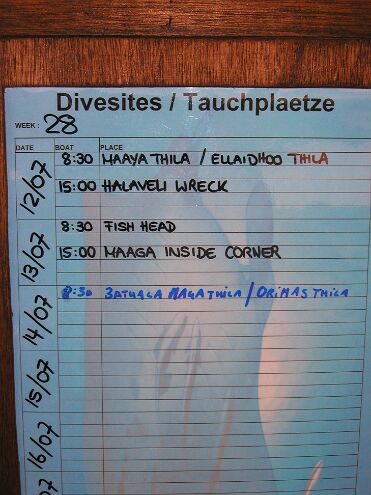 Divesites / Tauchplaetze
WEEK : 28
DATE BOAT PLACE
12/07 8:30 MAAYA THILA / ELLAIDHOO THILA
15:00 HALAVELI WRECK
13/07 8:30 FISH HEAD
15:00 MAAGA INSIDE CORNER
14/07 8:30 BATHALA MAGA THILA / ORIMAS THILA
15/07
16/07